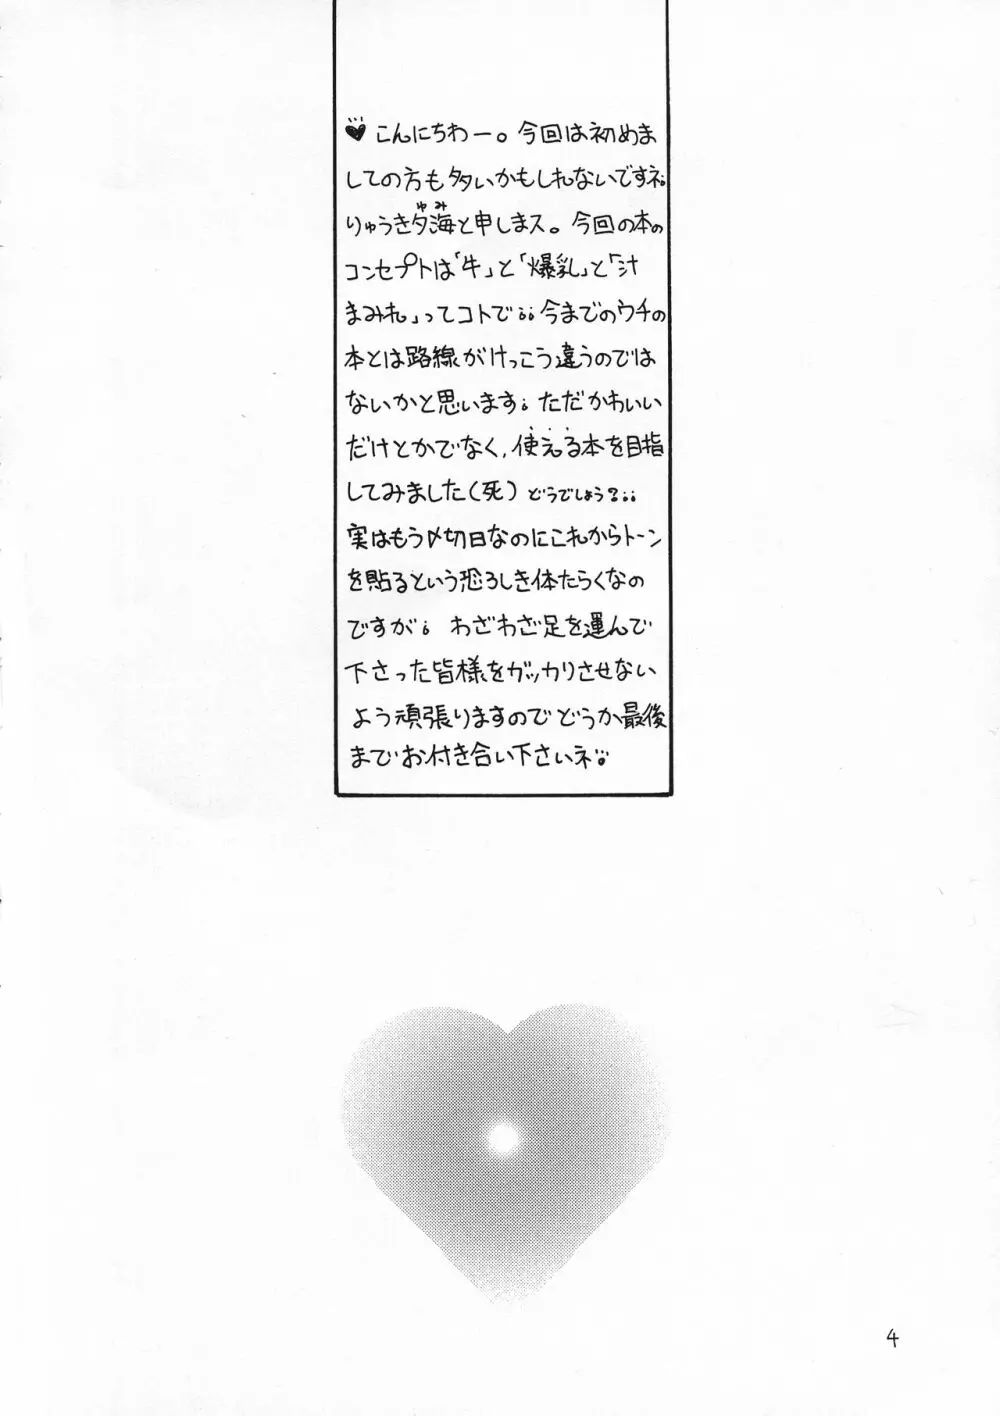 ♥こんにちわー。今回は初めま
しての方も多いかもしれないですネ。
りゅうき夕海と申しまス。今回の本の
ゆみ
コンセプトは「牛」と「爆乳」と「汁
まみれ」ってコトで。。今までのウチの
本とは路線がけっこう違うのでは
ないかと思います。ただかわいい
だけとかでなく、使える本を目指
してみました(死) どうでしょう?。。
実はもう〆切日なのにこれからトーン
を貼るという恐ろしき体たらくなの
ですが。わざわざ足を運んで
下さった皆様をガッカリさせない
よう頑張りますのでどうか最後
までお付き合い下さいネ。
4